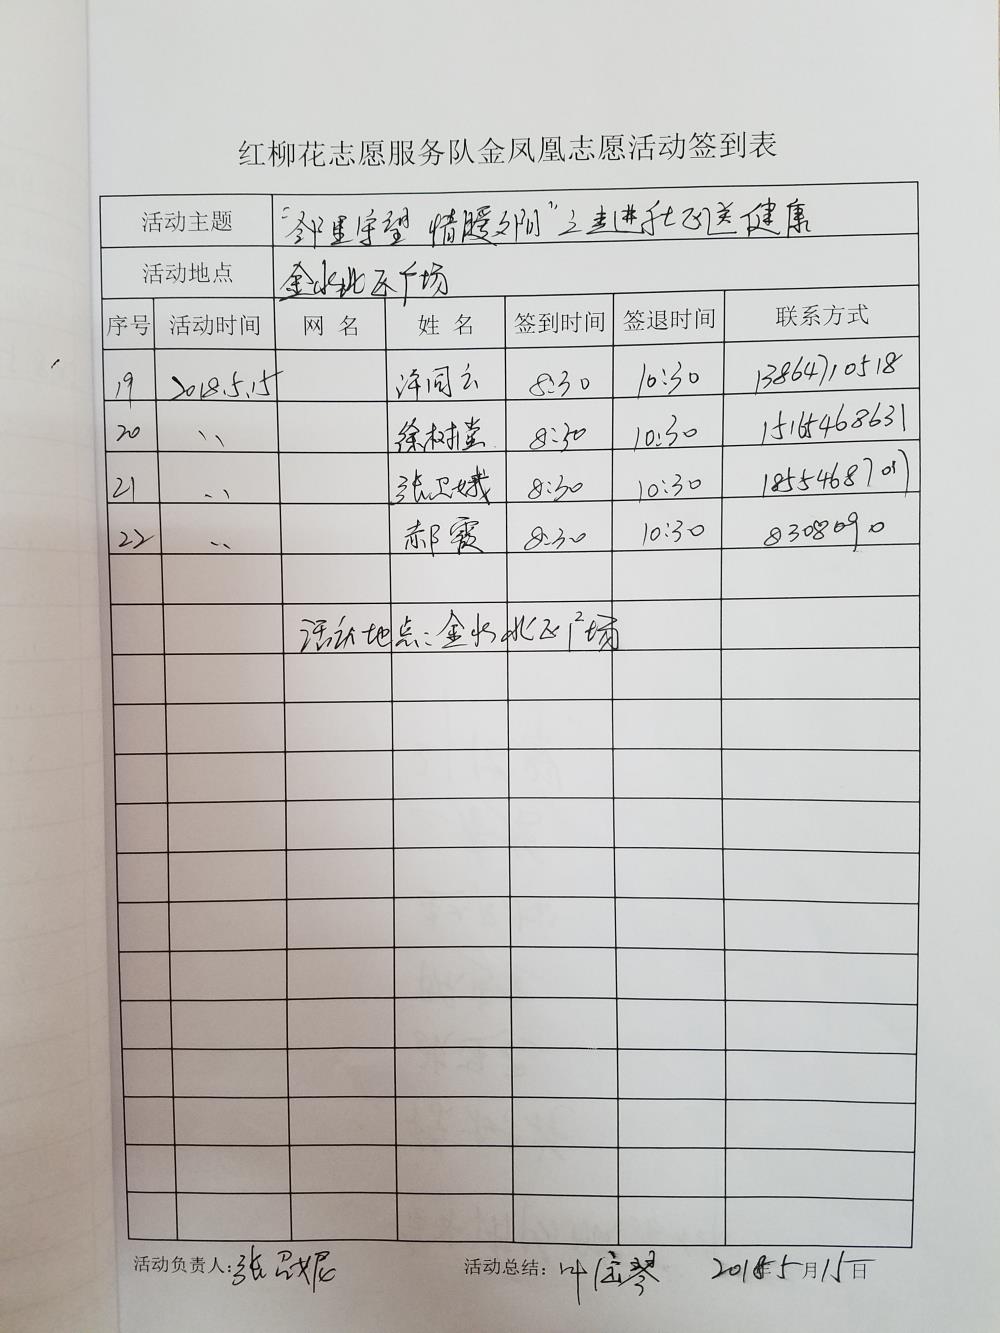 红柳花志愿服务队金凤凰志愿活动签到表
活动主题 “邻里守望 情暖夕阳”之走进社区送健康
活动地点 金水北区广场
序号 活动时间 网 名 姓 名 签到时间 签退时间 联系方式
19 2018.5.15 许同云 8:30 10:30 13864710518
20 、、 徐树堂 8:30 10:30 15165468631
21 、、 张卫娥 8:30 10:30
22 、、 郝霞 8:30 10:30 8308090
活动地点:金水北区广场
活动负责人:张卫妮 活动总结:叶宝琴 2018年5月15日